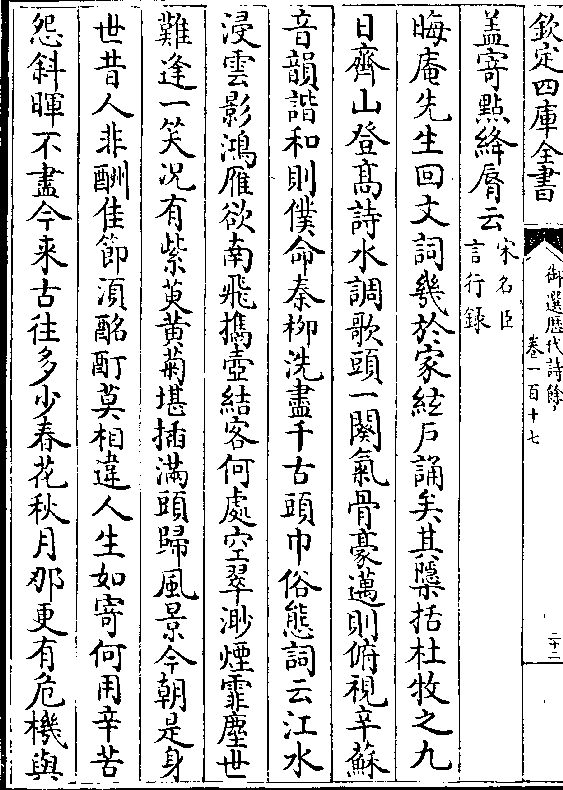 欽定四庫全書
御選歷代詩餘
卷一百十七
二十二
盖寄㸃絳脣云
宋名臣
言行録
晦庵先生回文詞幾於家絃戶誦矣其檃括杜牧之九
日齊山登髙詩水調歌頭一闋氣骨豪邁則俯視辛蘇
音韻諧和則僕命秦柳洗盡千古頭巾俗態詞云江水
浸雲影鴻雁欲南飛攜壺結客何處空翠渺煙霏塵世
難逢一笑况有紫萸黃菊堪插滿頭歸風景今朝是身
世昔人非酬佳節湏酩酊莫相違人生如寄何用辛苦
怨斜暉不盡今来古往多少春花秋月那更有危機與